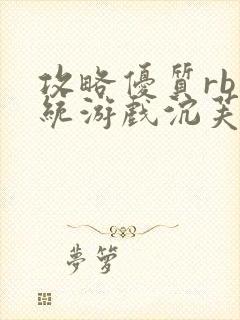 攻略優質rb
統游戲沉芙
夢夢